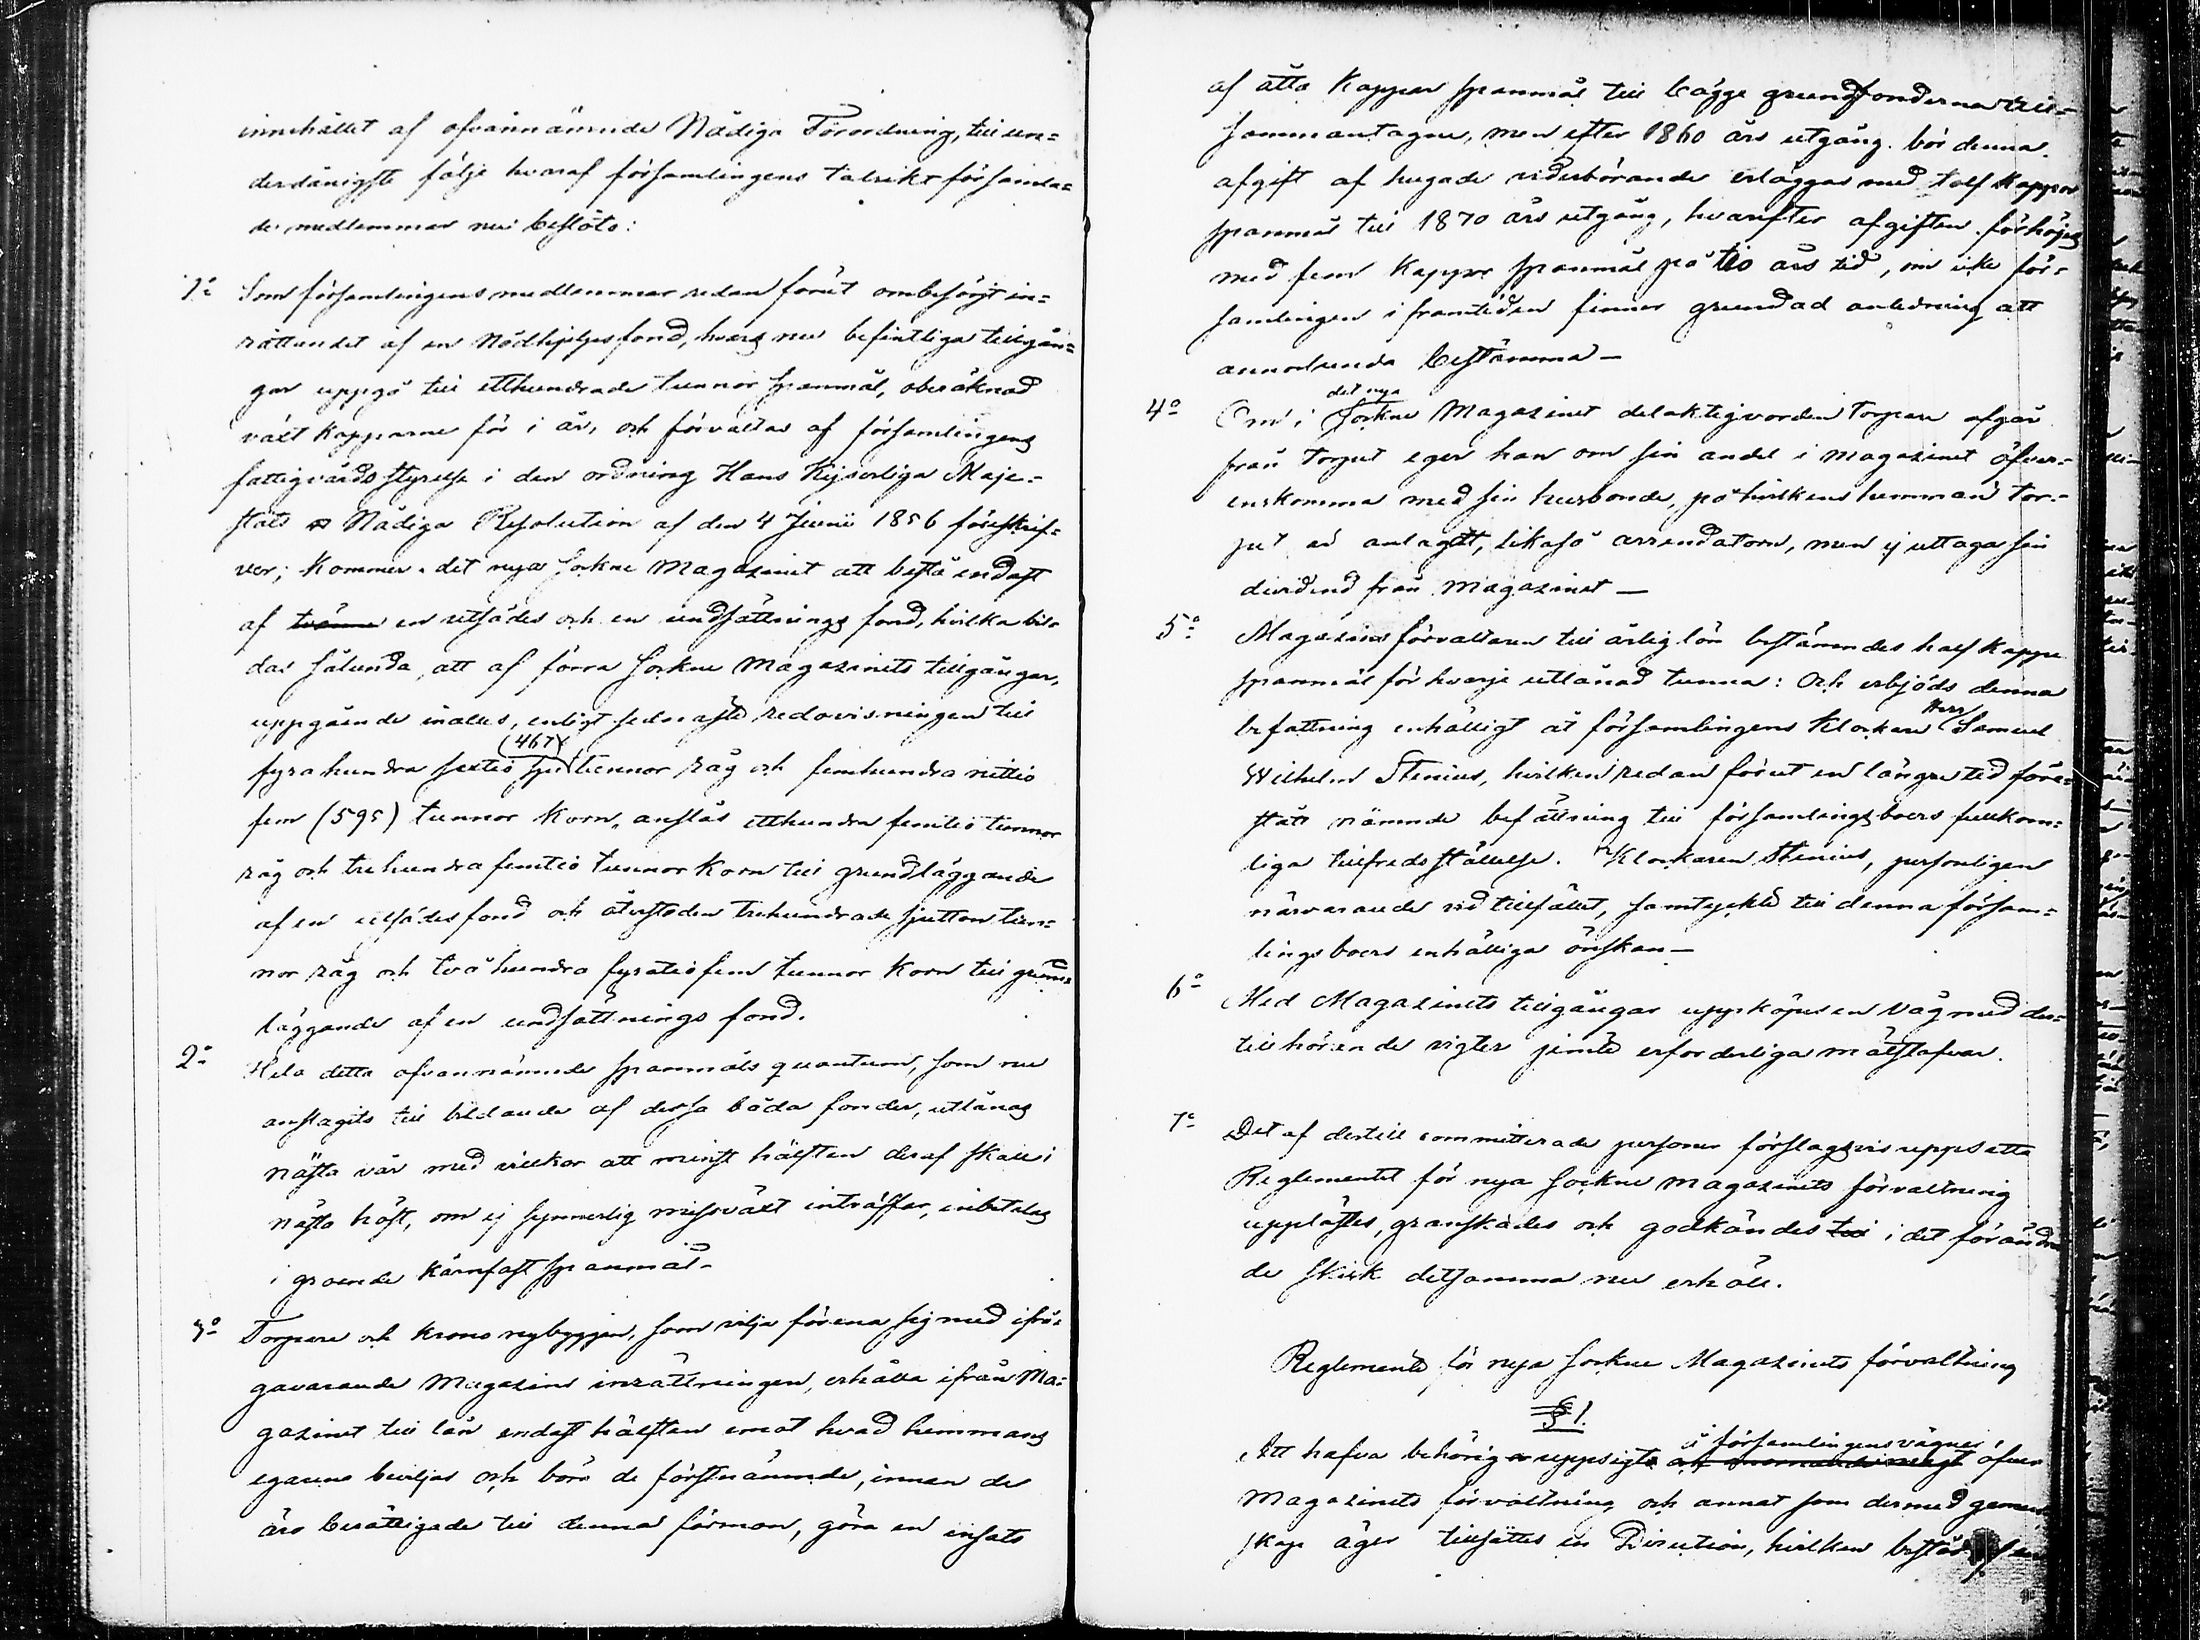 innehållet af ofvannämnde Nådiga Förordning, till un-
derdånigste följe hvaraf församlingens talrikt församla-
de medlemmar nu beslöto:
1o Som församlingens medlemmar redan förut ombesörjt in-
rättandet af en Nödhjelpsfond, hvars nu befintliga tillgån-
gar uppgå till etthundrade tunnor spanmål, oberäknad
växt kapparne för i år, och förvaltas af församlingens
fattigvårds styrelse i den ordning Hans Kejserliga Maje-
stäts Nådiga Resolution af den 4 Junii 1856 föreskrif-
ver; Kommer det nya Sockne Magazinet att bestå endast
af tvänne en utsädes och en undsättnings fond, hvilka bil-
das sålunda, att af förra Sockne Magazinets tillgångar,
uppgående inalles, enligt sednaste redovisningen till
(467)
fyrahundra sextio sju tunnor råg och femhundra nittio
fem (595) tunnor Korn, anslås etthundra femtio tunnor
råg och trehundra femtio tunnor Korn till grundläggande
af en utsädesfond och återstoden trehundrade sjutton tun-
nor råg och två hundra fyratiofem tunnor Korn till grund-
läggande af en undsättnings fond.
2o Hela detta ofvannämnde spanmåls quantum, som nu
anslagits till bildande af dessa båda fonder, utlånas
nästa vår med villkor att minst hälften deraf skall i
nästa höst, om ej synnerlig missväxt inträffar, inbetalas
i groende kärnfast spanmål.
3o Torpare och Krono nybyggen, som vilja förena sig med ifrå-
gavarande Magazins inrättningen, erhålla ifrån Ma-
gazinet till lån endast hälften emot hvad hemmans
egarne beviljas och böra de förstnämnde, innan de
äro berättigade till denna förmon, göra en insats
af åtta Kappar spanmål till bägge grundfonderna till-
sammantagne, men efter 1860 års utgång bör denna
afgift af hugade vederbörande erläggas med tolf Kappar
spanmål till 1870 års utgång, hvarefter afgiften förhöjes
med fem Kappar spanmål på tio års tid, om icke för-
samlingen i framtiden finner grundad anledning att
annorlunda bestämma—
det nya
4o Om i Sockne Magazinet delaktigvorden Torpare afgår
från torpet eger han om sin andel i magazinet öfver-
enskomma med sin husbonde, på hvilkens hemman tor-
pet är anlagdt, likaså arrendatorn, men ej uttaga sin
dividend från Magazinet—
5o Magazins förvaltaren till årlig lön bestämdes half kappe
spanmål för hvarje utlånad tunna: Och erbjöds denna
Herr
befattning enhälligt åt församlingens Klockare Samuel
Wilhelm Stenius, hvilken redan förut en längre tid före-
stått nämnde befattning till församlingsboers fullkom-
liga tillfredsställelse. Klockaren Stenius, personligen
närvarande vid tillfället, samtyckte till denna försam-
lingsboers enhälliga önskan—
6o Med Magazinets tillgångar uppköpes en Våg med der-
till hörande vigter jemte erforderliga målstafvar.
7o Det af dertill committerade personer förslagsvis uppsatta
Reglementet för nya Sockne magazinets förvaltning
upplästes, granskades och godkändes till i det föränd-
de skick detsamma nu erhöll.
Reglemente för nya Sockne Magazinets förvaltning
§ 1.
å församlingens vägnar
Att hafva behörig uppsigt öfver
Magazinets förvaltning och annat som dermed gemen-
skap äger tillsättes en Direction, hvilken består af en